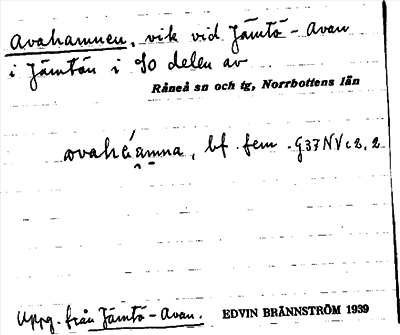 Avahamnen, vik vid Jämtö-Avan
i Jämtön i SO delen av
Råneå sn och tg, Norrbottens län
avahåmna, bf. fem. G37NVc2,2
Uppg. från Jämtö-Avan. EDVIN BRÄNNSTRÖM 1939